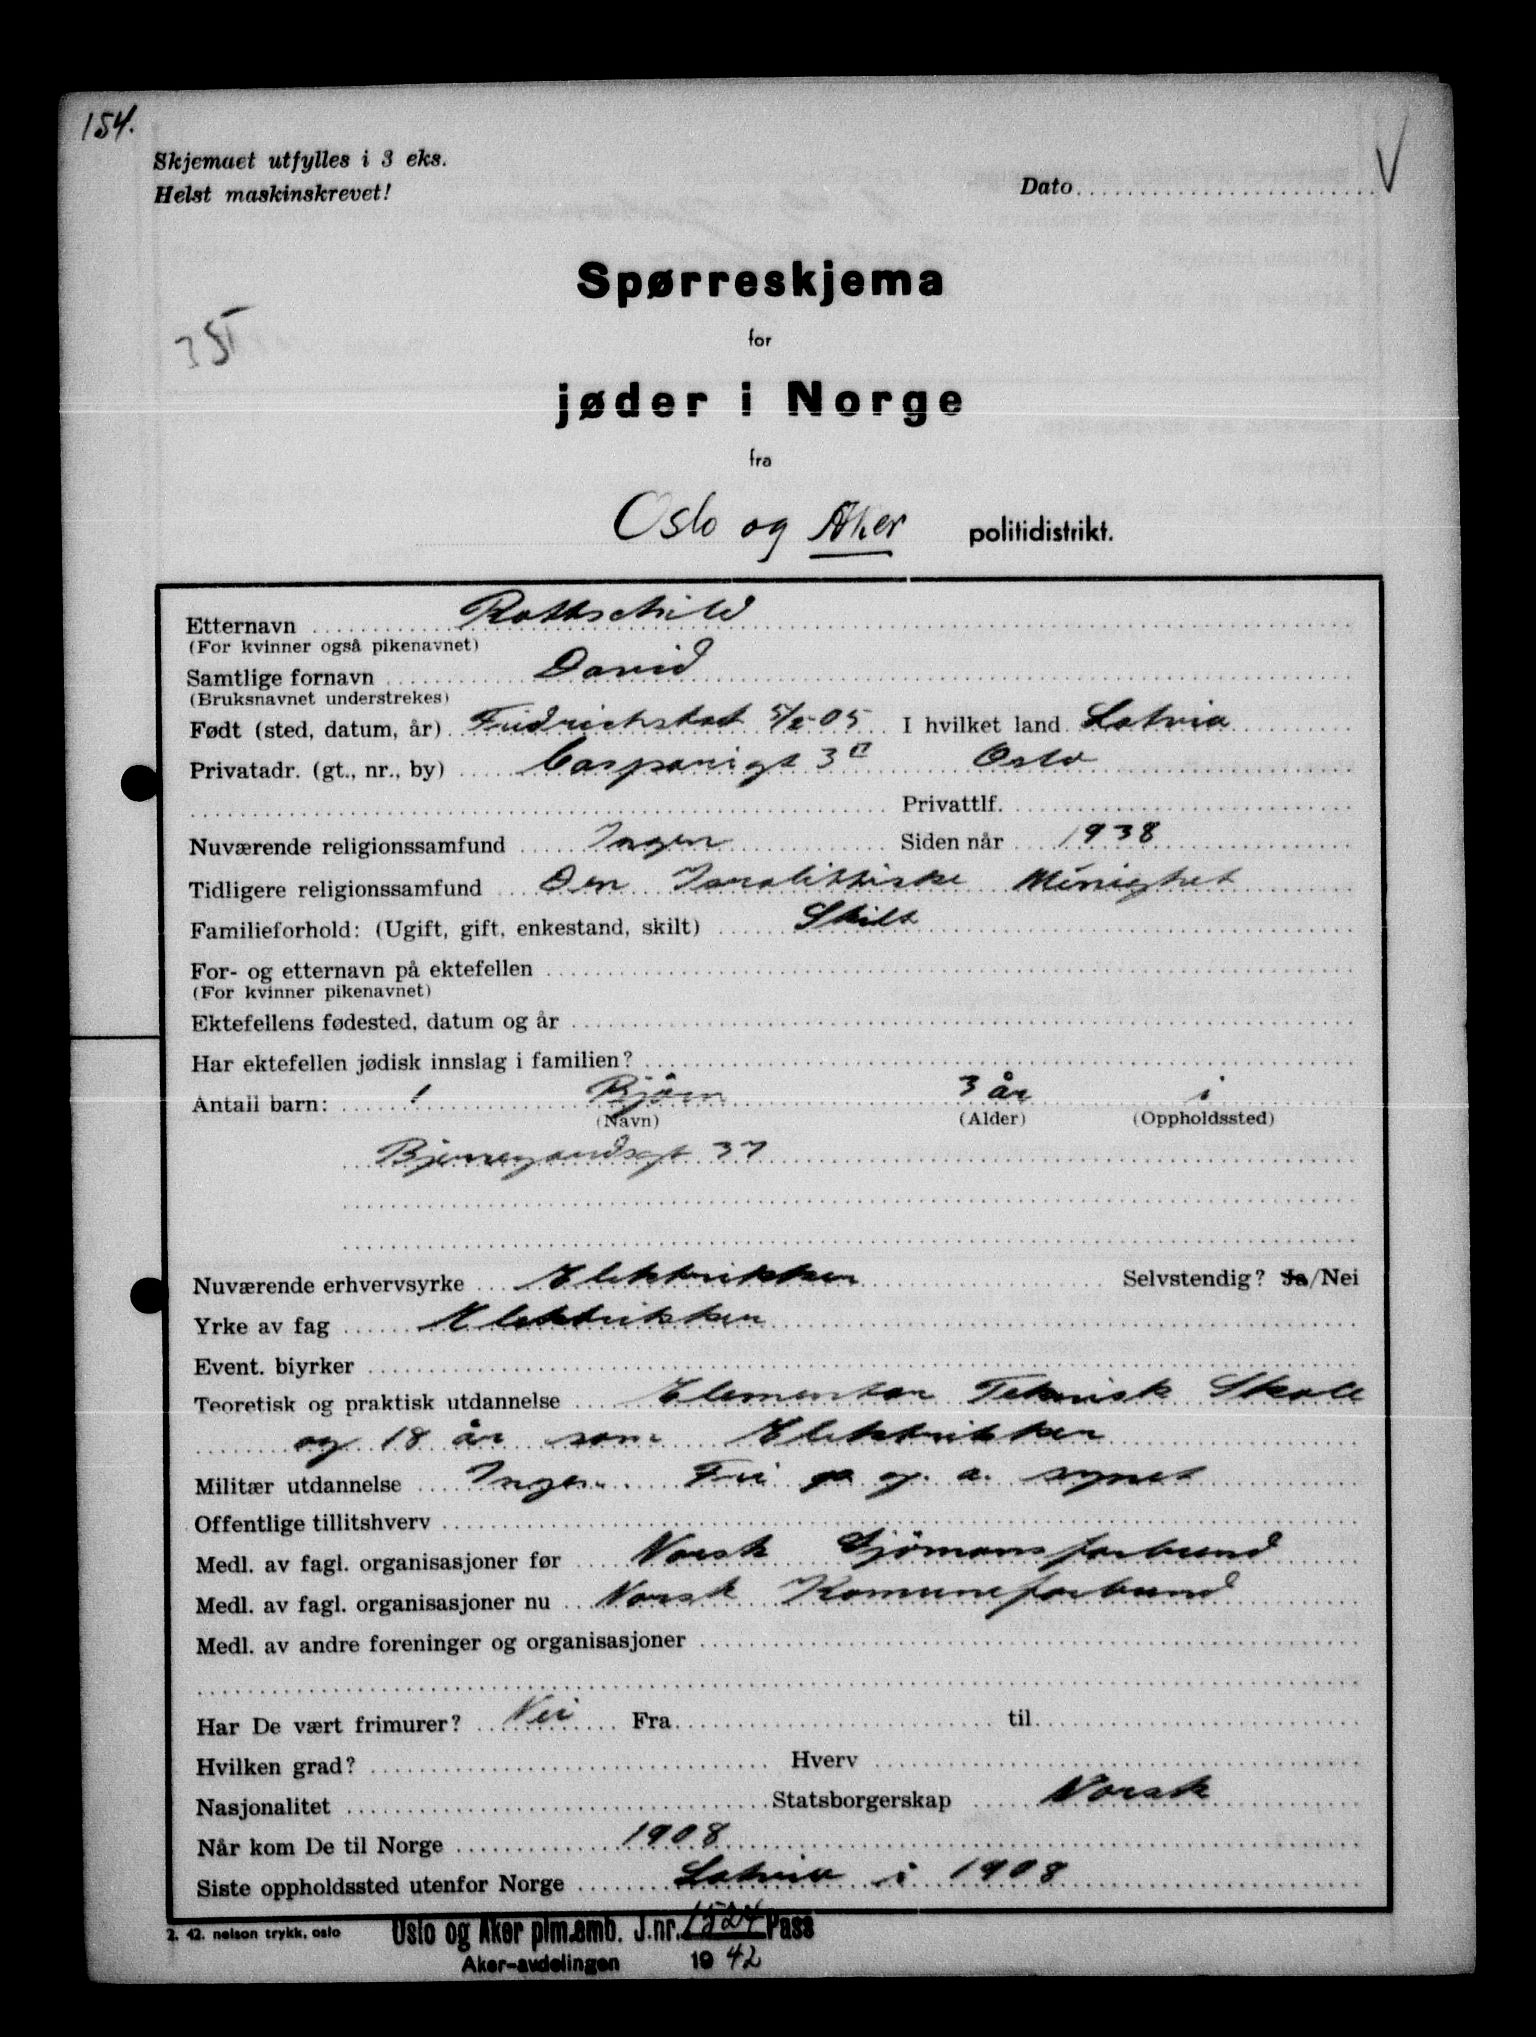 154.
Skjemaet utfylles i 3 eks.
Helst maskinskrevet!
Dato
V
Spørreskjema
for
jøder i Norge
fra
Oslo og Aker politidistrikt.
Etternavn Rothschild
(For kvinner også pikenavnet)
Samtlige fornavn David
(Bruksnavnet understrekes)
Født (sted, datum, år) Fridrichstat 5/2-05 I hvilket land Latvia
Privatadr. (gt., nr., by) Casparigt 3 II Oslo
Privattlf.
Nuværende religionssamfund Ingen Siden når 1938
Tidligere religionssamfund Den Israelittiske Menighet
Familieforhold: (Ugift, gift, enkestand, skilt) Skilt
For- og etternavn på ektefellen
(For kvinner pikenavnet)
Ektefellens fødested, datum og år
Har ektefellen jødisk innslag i familien?
Antall barn: 1 Bjørn 3 år i
(Navn) (Alder) (Oppholdssted)
Bjerregaardsgt 37
Nuværende erhvervsyrke Elektrikker Selvstendig? Ja/Nei
Yrke av fag Elektrikker
Event. biyrker
Teoretisk og praktisk utdannelse Elementær Teknisk Skole
og 18 år som Elektrikker
Militær utdannelse Ingen. Fri p. g. a. synet
Offentlige tillitshverv
Medl. av fagl. organisasjoner før Norsk Sjømansforbund
Medl. av fagl. organisasjoner nu Norsk Komuneforbund
Medl. av andre foreninger og organisasjoner
Har De vært frimurer? Nei Fra til
Hvilken grad? Hverv
Nasjonalitet Statsborgerskap Norsk
Når kom De til Norge 1908
Siste oppholdssted utenfor Norge Latvia i 1908
2. 42. nelson trykk, oslo
Oslo og Aker plm.emb. J.nr. 1524 Pass
Aker-avdelingen 1942